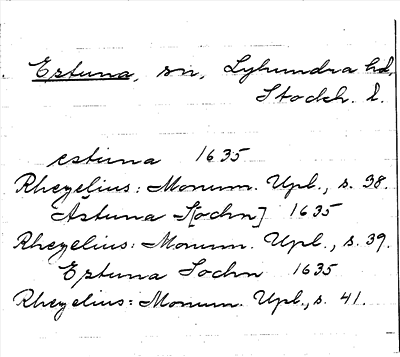 Estuna, sn, Lyhundra hd,
Stockh. l.
estuna 1635
Rhezelius: Monum. Upl., s. 38.
Åstuna S[ochn] 1635
Rhezelius: Monum. Upl., s. 39.
Estuna Sochn 1635
Rhezelius: Monum. Upl., s. 41.